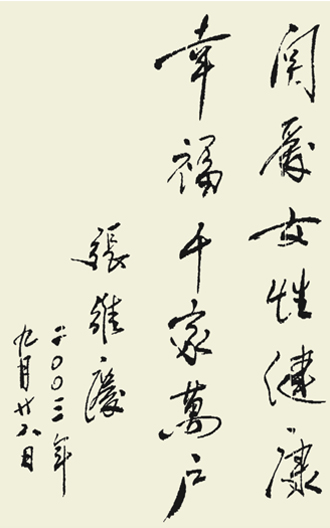 関爱女性健康
幸福千家萬户
張維慶
二００三年
九月廿八日